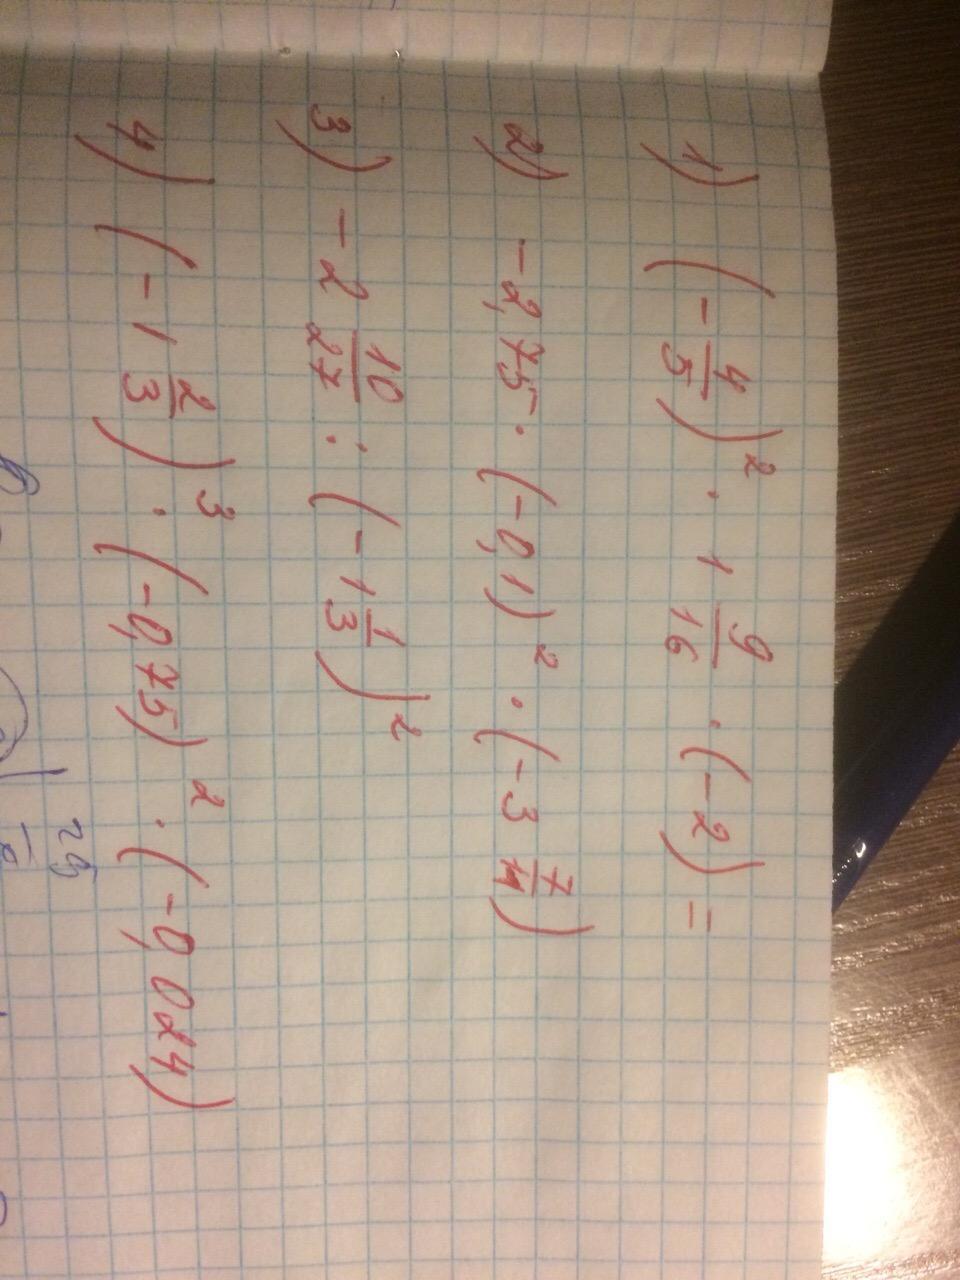 1) (-4/5)² · 1 9/16 · (-2) =
2) -2,75 · (-0,1)² · (-3 7/11)
3) -2 10/27 : (-1 1/3)²
4) (-1 2/3)³ · (-0,75)² · (-0,024)